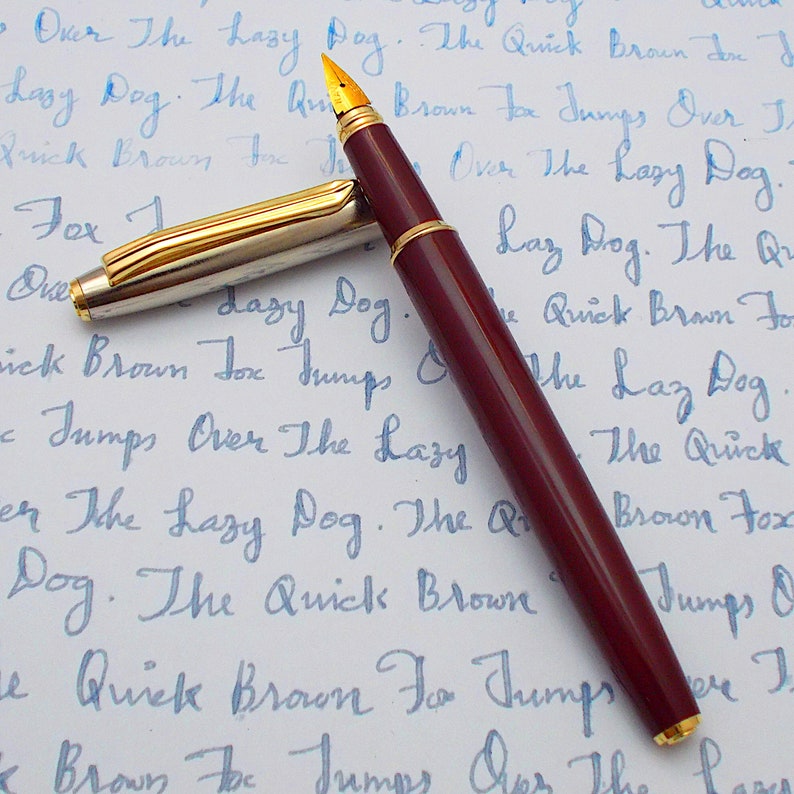 Over The Lazy Dog. The Quick Brown Fox
Lazy Dog. The Qu Brown Fox Jumps Over T
Quick Brown Fox Over The Lazy Dog.
Fox J Laz Dog. The Q
Over Lazy Dog. The Quick Brown Fo
uick Brown Fox Jumps O The Laz Dog.
x Jumps Over The Lazy . The Quick
er The Lazy Dog. The Q Brown Fox
Dog. The Quick Brown Jumps O
e Quick Brown Fox Jumps er T
Brown Fox Jumps Over The Lazy